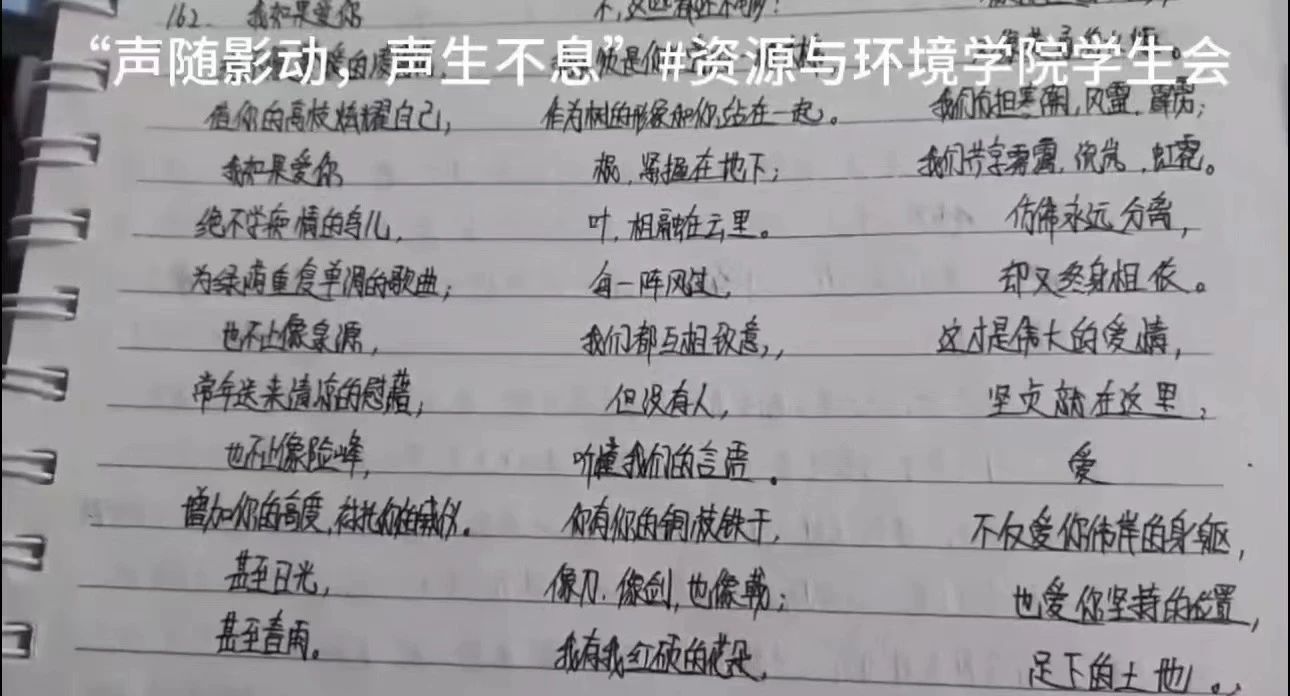 “声随影动，声生不息”#资源与环境学院学生会
162. 我如果爱你
借你的高枝炫耀自己，
我如果爱你
绝不学痴情的鸟儿，
为绿荫重复单调的歌曲；
也不止像泉源，
常年送来清凉的慰藉；
也不止像险峰，
增加你的高度，衬托你的威仪。
甚至日光，
甚至春雨。
不，这些都还不够！
作为树的形象和你站在一起。
根，紧握在地下；
叶，相融在云里。
每一阵风过，
我们都互相致意，，
但没有人，
听懂我们的言语。
你有你的铜枝铁干，
像刀，像剑，也像戟；
我有我红硕的花朵，
我们分担寒潮，风雷，霹雳；
我们共享雾霭，流岚，虹霓。
仿佛永远分离，
却又终身相依。
这才是伟大的爱情，
坚贞就在这里；
爱
不仅爱你伟岸的身躯，
也爱你坚持的位置，
足下的土地。